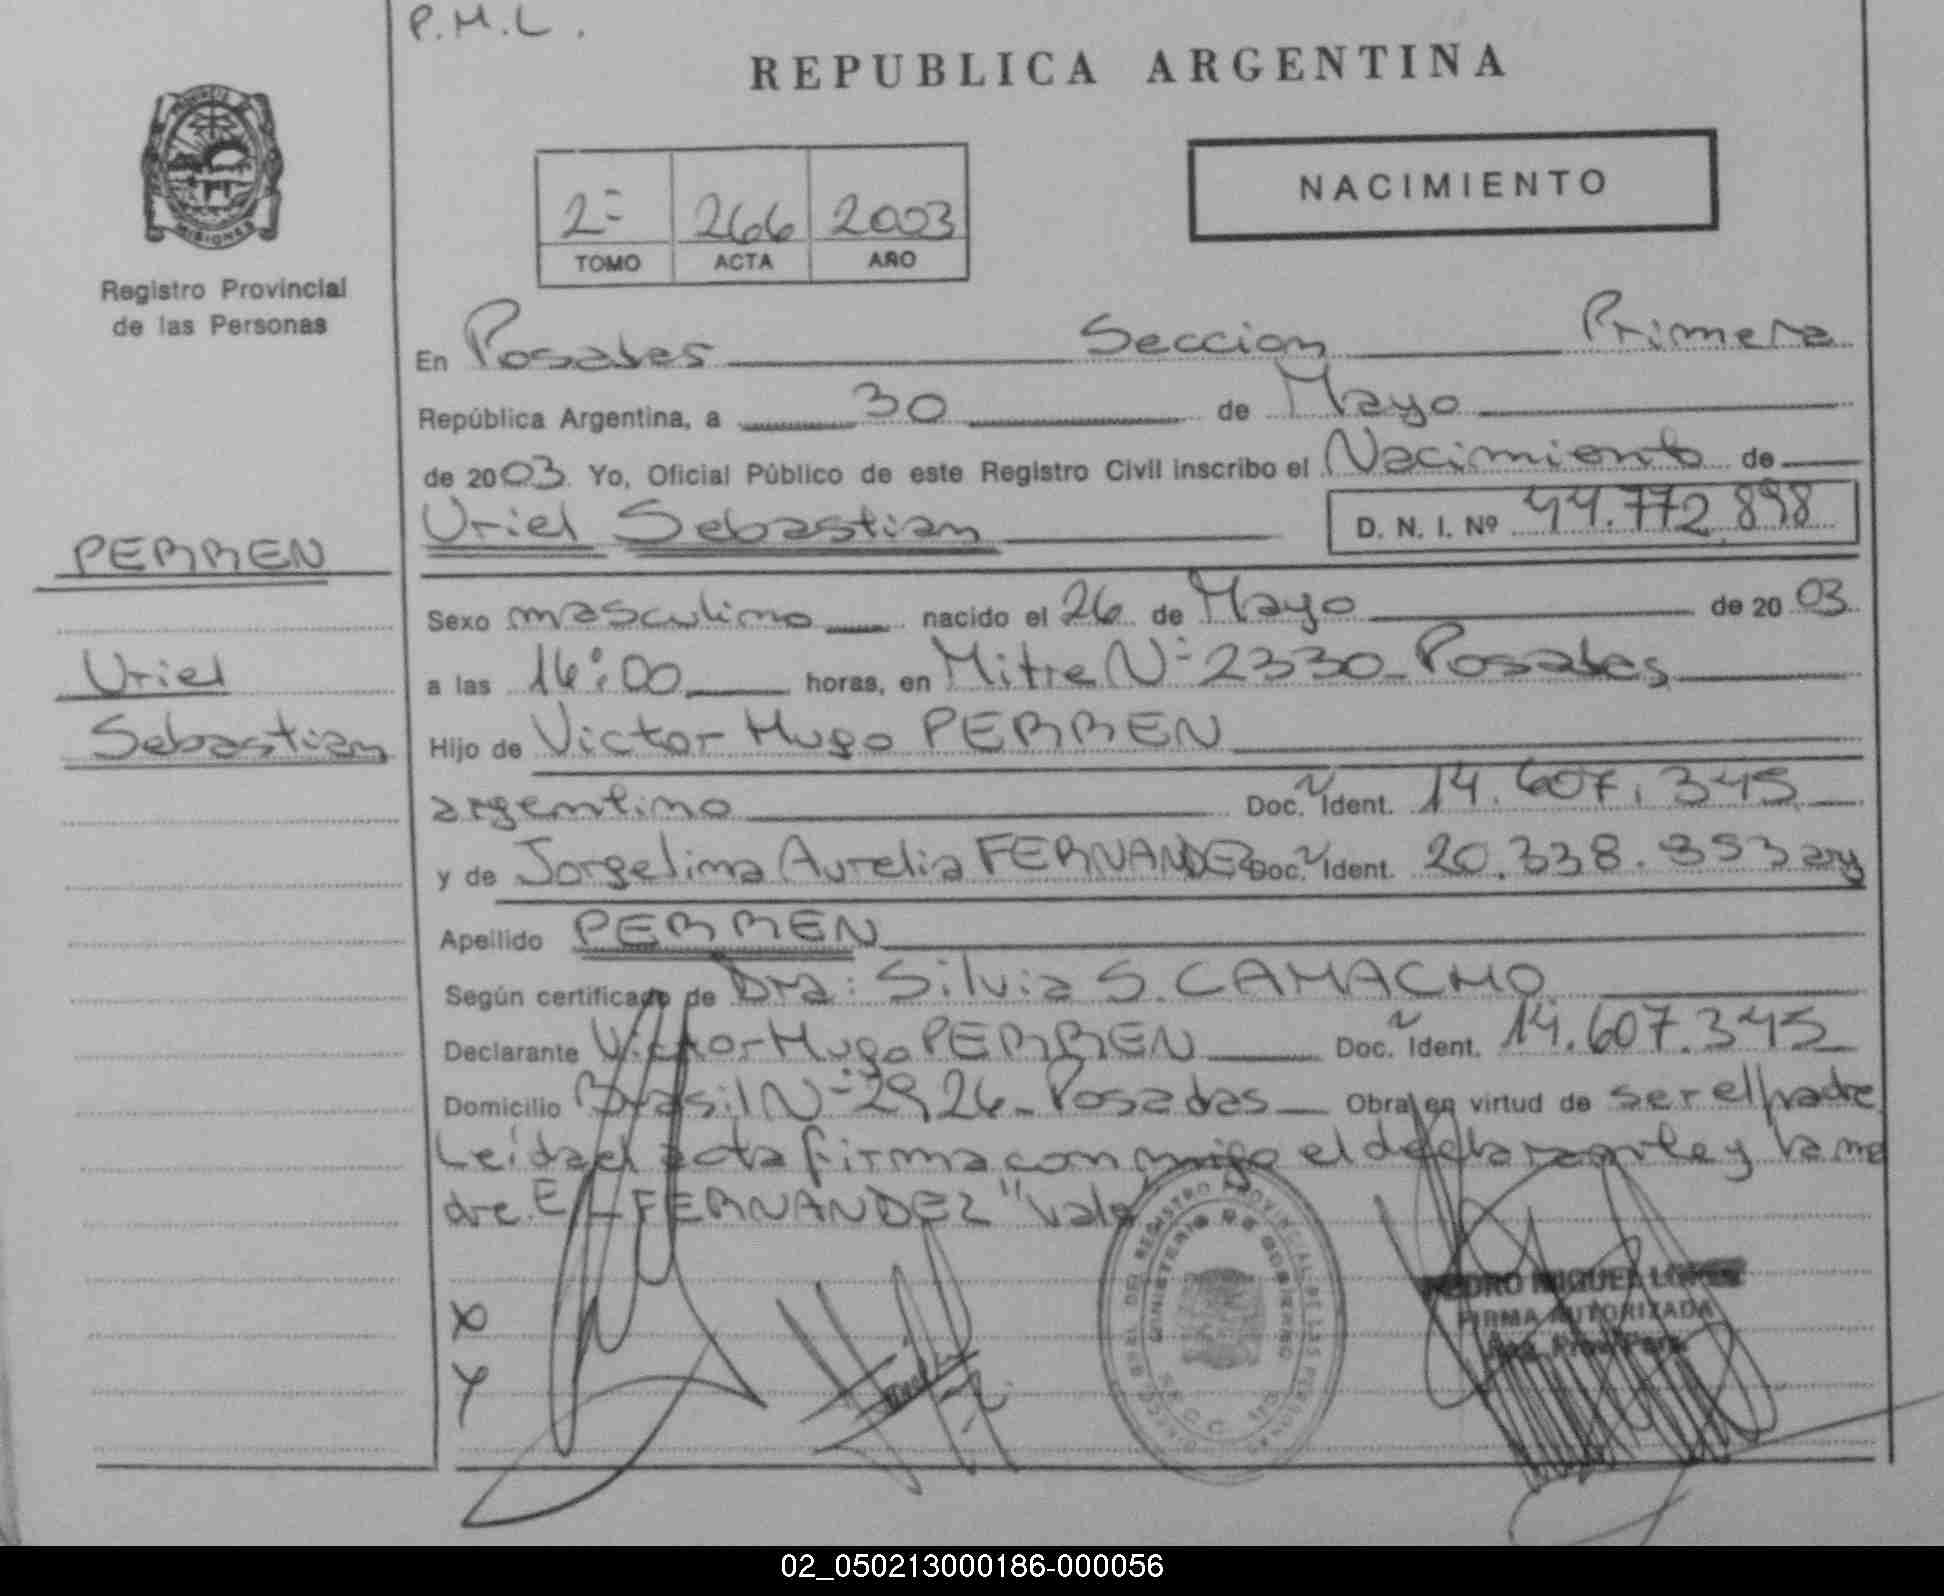 P.M.L.
REPUBLICA ARGENTINA
PROVINCIA DE
MISIONES
Registro Provincial
de las Personas
NACIMIENTO
2º 266 2003
TOMO ACTA AÑO
En Posadas Seccion Primera
República Argentina, a 30 de Mayo
de 2003 Yo, Oficial Público de este Registro Civil inscribo el Nacimiento de
Uriel Sebastian D. N. I. Nº 44.772.898
PERREN
Uriel
Sebastian
Sexo masculino nacido el 26 de Mayo de 2003
a las 16:00 horas, en Mitre Nº 2330 Posadas
Hijo de Victor Hugo PERREN
argentino Doc. Ident. 14.607.345
y de Jorgelina Aurelia FERNANDEZ Doc. Ident. 20.338.353 arg
Apellido PERREN
Según certificado de Dra: Silvia S. CAMACHO
Declarante Victor Hugo PERREN Doc. Ident. 14.607.345
Domicilio Brasil Nº 2926 Posadas Obra en virtud de ser el padre
Leída el acta firma conmigo el declarante y la ma
dre. E/L FERNANDEZ "Vale"
X
Y
REGISTRO PROVINCIAL DE LAS PERSONAS
MINISTERIO DE GOBIERNO
PEDRO MIGUEL
FIRMA AUTORIZADA
02_050213000186-000056